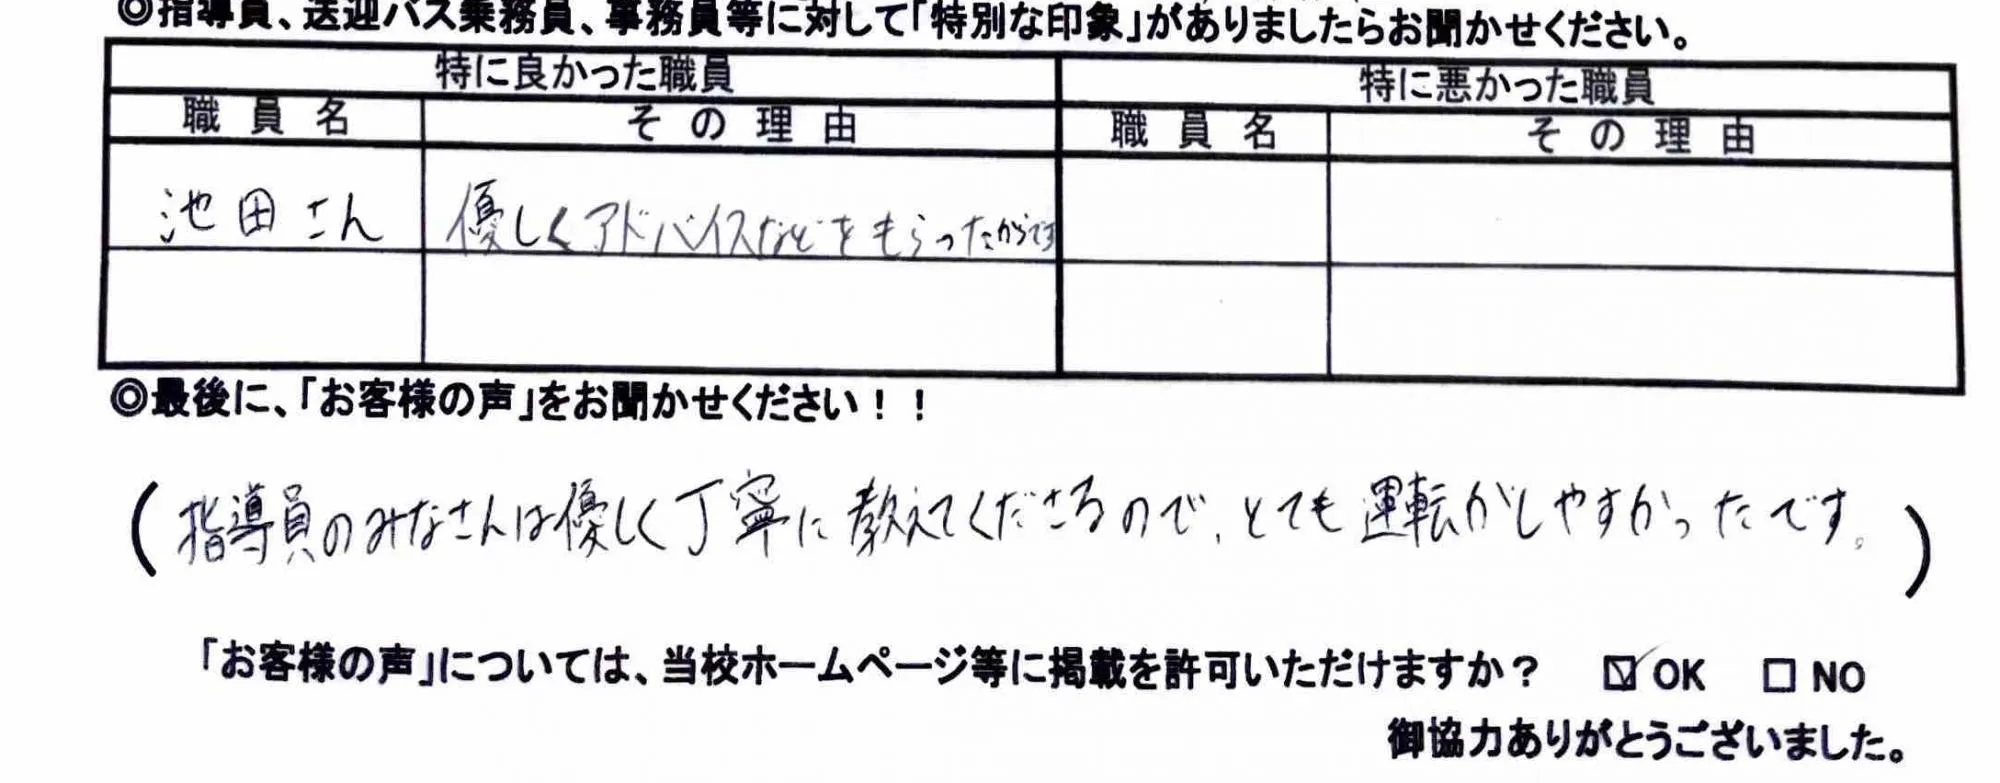 ◎指導員、送迎バス乗務員、事務員等に対して「特別な印象」がありましたらお聞かせください。
特に良かった職員 特に悪かった職員
職員名 その理由 職員名 その理由
池田さん 優しくアドバイスなどをもらったからです
◎最後に、「お客様の声」をお聞かせください！！
(指導員のみなさんは優しく丁寧に教えてくださるので、とても運転がしやすかったです。)
「お客様の声」については、当校ホームページ等に掲載を許可いただけますか？ ☑OK □NO
御協力ありがとうございました。